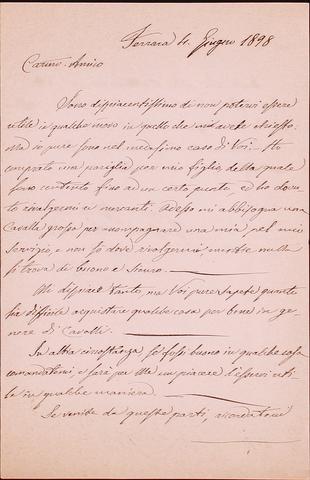 Ferrara li. Giugno 1898
Carmo. Amico
Sono dispiacentissimo di non potervi essere
utile in qualche modo in quello che mi avete chiesto.
Ma io pure sono nel medesimo caso di Voi. Ho
comprato una pariglia per mio figlio della quale
sono contento fino ad un certo punto, ed ho dovu-
to rivolgermi a mercanti. Adesso mi abbisogna una
Cavalla grossa per accompagnare una mia pel mio
servizio, e non so dove rivolgermi mentre nulla
si trova di buono e sicuro.
Mi dispiace tanto, ma Voi pure sapete quanto
sia difficile acquistare qualche cosa per bene in ge-
nere di Cavalli.
In altra circostanza se fossi buono in qualche cosa
comandatemi, e sarà per me un piacere l'esservi uti-
le in qualche maniera.
Se venite da queste parti,